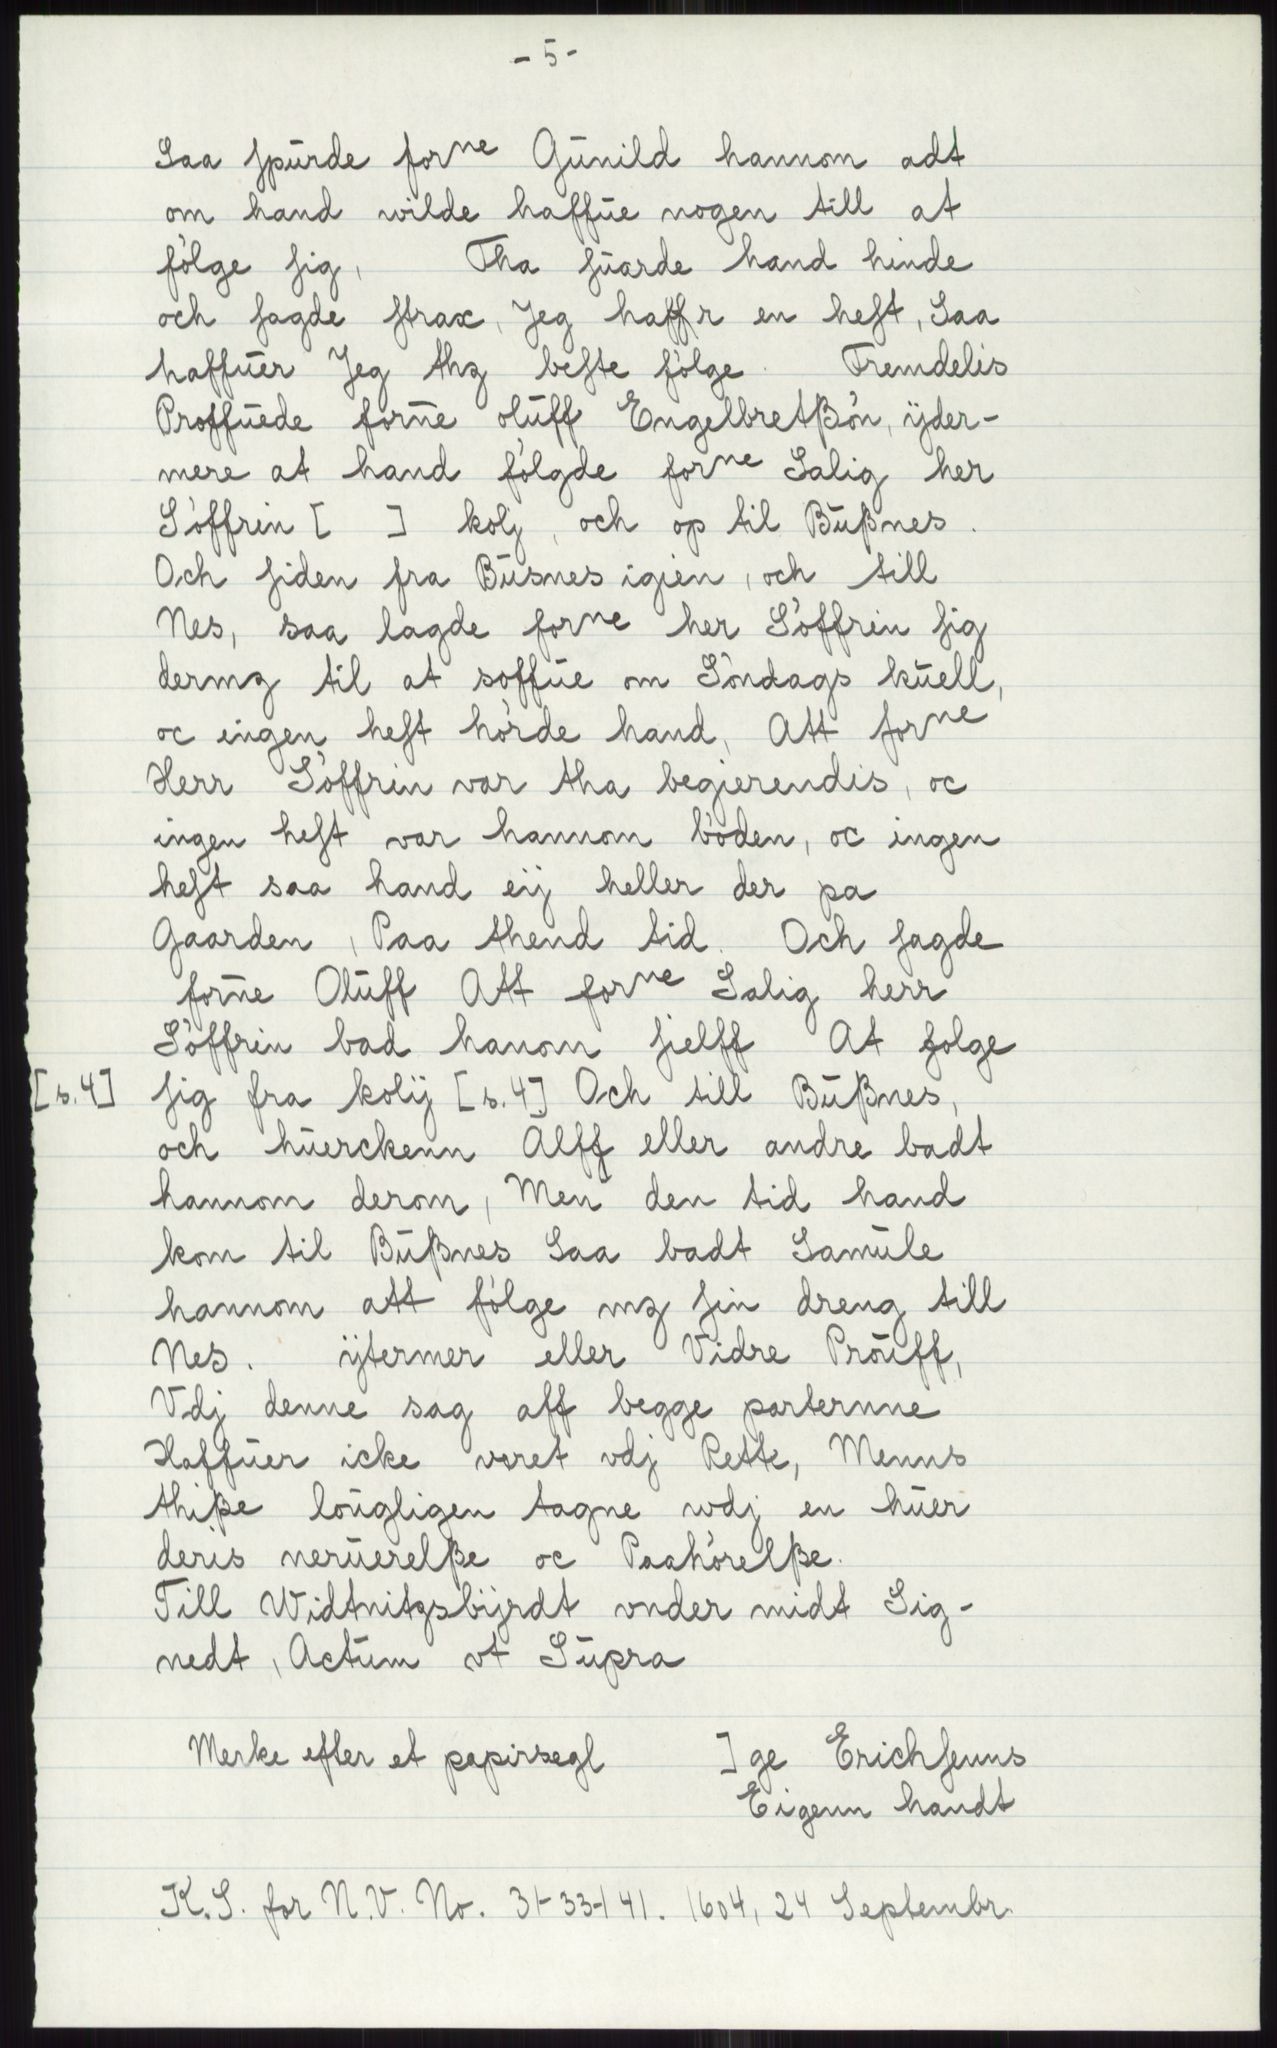 - 5 -
Saa spurde forne Gŭnild hannom adt
om hand wilde haffŭe nogen till at
følge sig, Tha sŭarde hand hinde
och sagde strax, Jeg haffr en hest, Saa
haffŭer Jeg thz beste følge. Fremdelis
Proffŭede forne olŭff Engelbretßøn, ÿder-
mere at hand følgde forne Salig her
Søffrin [ ] kolj, och op til Bŭßnes.
Och siden fra Bŭsnes igien, och till
Nes, saa lagde forne her Søffrin sig
dermz til at soffŭe om Søndags kŭell,
oc ingen hest hørde hand, Att forne
Herr Søffrin var tha begierendis, oc
ingen hest var hannom bøden, oc ingen
hest saa hand eij heller der pa
Gaarden, Paa thend tid. Och sagde
forne Olŭff Att forne Salig herr
Søffrin bad hanom sielff At følge
[s.4] sig fra kolij [s.4] Och till Bŭßnes,
och hŭerckenn Alff eller andre badt
hannom derom, Men den tid hand
kom til Bŭßnes Saa badt Samŭle
hannom att følge mz sin dreng till
Nes. ÿtermer eller Vidre Prøŭff,
Vdj denne sag aff begge parternne
Haffŭer icke veret vdj Rette, Menns
thiße loŭgligen tagne wdj en hŭer
deris nerŭerelße oc Paahørelße.
Till Widtnitzsbijrdt vnder midt Sig-
nedt, Actŭm vt Sŭpra
Merke efter et papirsegl ]ge Erichsenns
Eigenn handt
K.S. for N.V. No. 31-33-141. 1604, 24 Septembr.